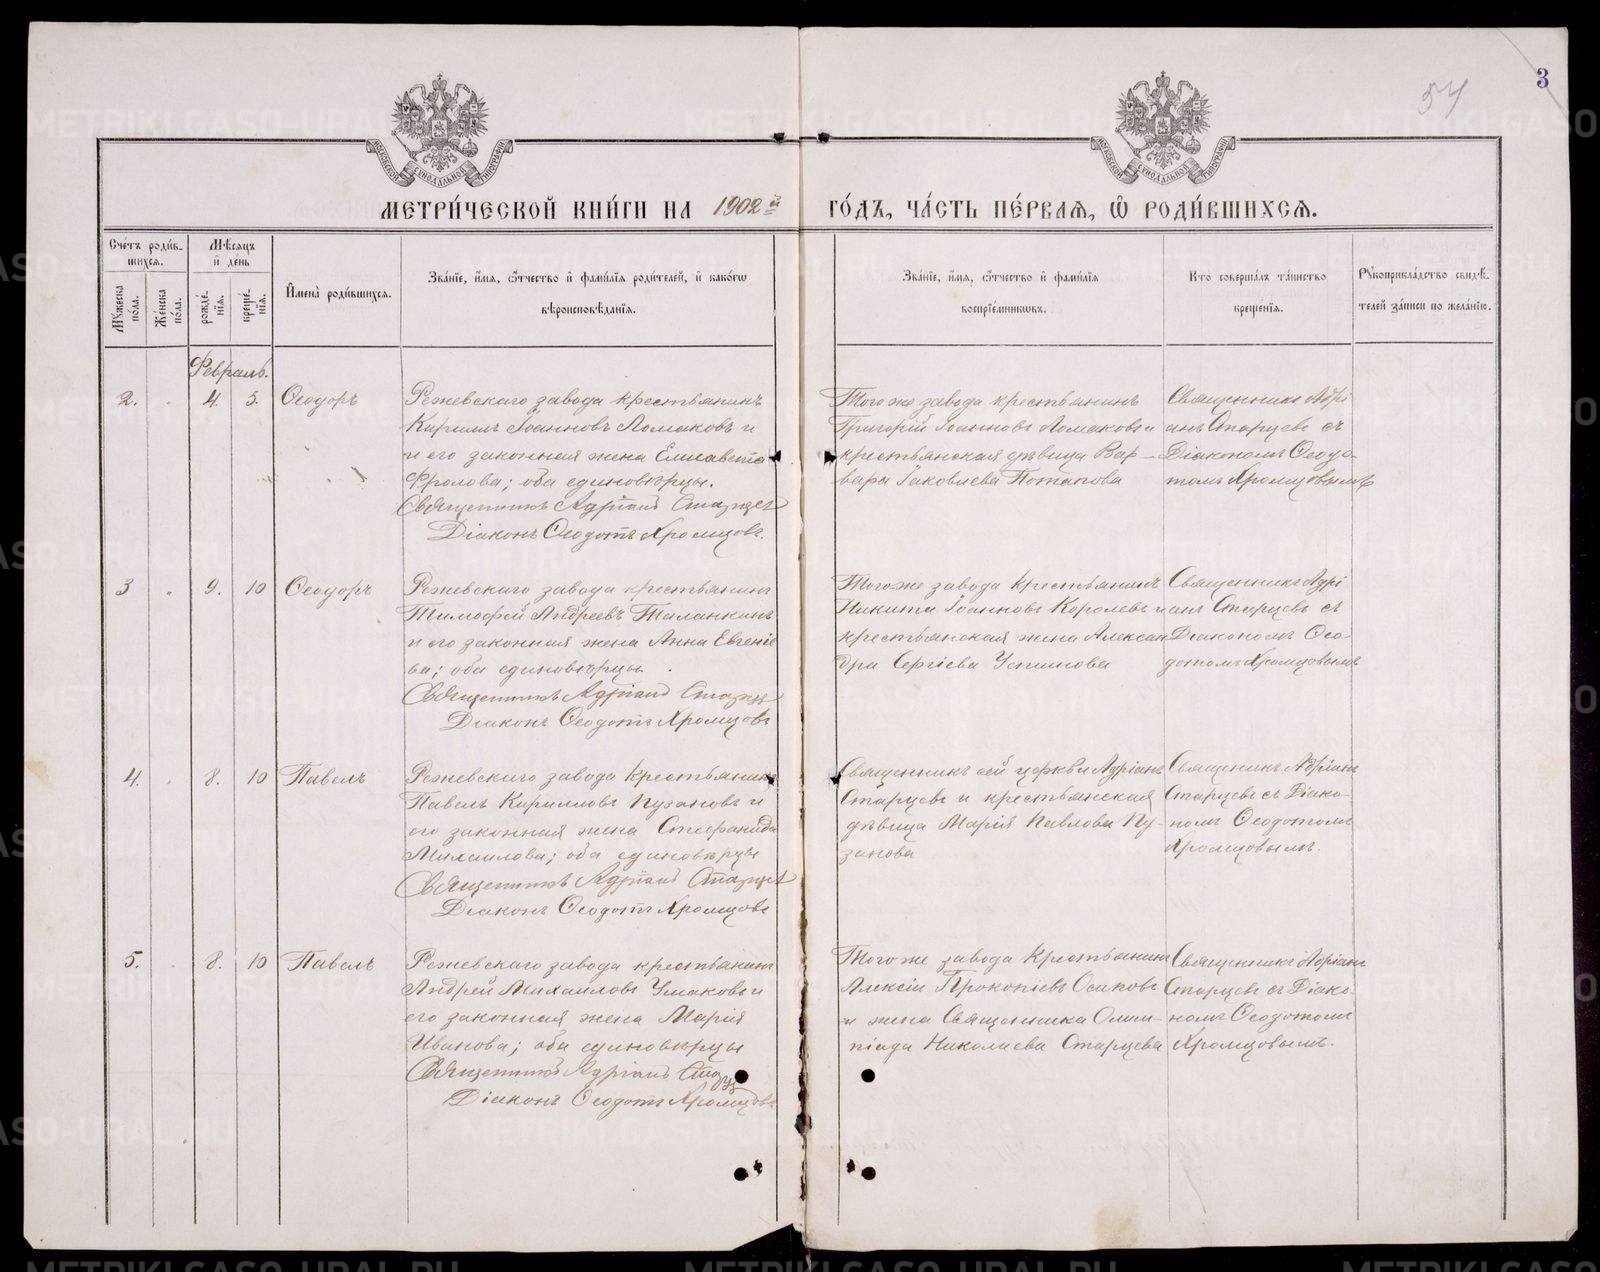 54
3
МОСКОВСКОЙ СѴНОДАЛЬНОЙ ТИПОГРАФІИ
МОСКОВСКОЙ СѴНОДАЛЬНОЙ ТИПОГРАФІИ
МЕТРИ́ЧЕСКОЙ КНИ́ГИ НА 1902й ГО́ДЪ, ЧА́СТЬ ПЕ́РВАѦ, Ѡ РОДИ́ВШИХСѦ.
Сче́тъ роди́в-
шихсѧ.
Мꙋ́жеска по́ла.
Же́нска по́ла.
Мѣ́сѧцъ и҆ де́нь
рожде́-нїѧ.
креще́-нїѧ.
И҆мена̀ роди́вшихсѧ.
Зва́нїе, и҆́мѧ, ѻ҆́тчество и҆ фами́лїѧ роди́телей, и҆ како́гѡ
вѣроисповѣ́данїѧ.
Зва́нїе, и҆́мѧ, ѻ҆́тчество и҆ фами́лїѧ
воспрїе́мниковъ.
Кто̀ соверша́лъ та́инство
креще́нїѧ.
Рꙋкоприкла́дство свидѣ́-
телей за́писи по жела́нїю.
Февраль.
2. 4. 5. Ѳеодоръ
Режевскаго завода крестьянинъ
Кириллъ Іоанновъ Ломаковъ и
и его законная жена Елисавета
Фролова; оба единовѣрцы.
Священникъ Адріанъ Старцев
Діаконъ Ѳеодотъ Хромцовъ.
Того же завода крестьянинъ
Григорій Іоанновъ Ломаковъ и
крестьянская дѣвица Вар-
вара Іаковлева Потапова
Священникъ Адрі
анъ Старцевъ съ
Діакономъ Ѳеодо-
томъ Хромцовымъ
3 9. 10 Ѳеодоръ
Режевскаго завода крестьянинъ
Тимоѳей Андреевъ Таланкинъ
и его законная жена Анна Евгеніе
ва; оба единовѣрцы.
Священникъ Адріанъ Старцев
Діаконъ Ѳеодотъ Хромцовъ
Того же завода крестьянинъ
Никита Іоанновъ Королевъ и
крестьянская жена Алексан
дра Сергіева Устинова
Священникъ Адрі
анъ Старцевъ съ
Діакономъ Ѳео-
дотомъ Хромцовымъ
4. 8. 10 Павелъ
Режевскаго завода крестьянинъ
Павелъ Кирилловъ Пузановъ и
его законная жена Стефанида
Михаилова; оба единовѣрцы
Священникъ Адріанъ Старцев
Діаконъ Ѳеодотъ Хромцовъ
Священникъ сей церкви Адріанъ
Старцевъ и крестьянская
дѣвица Марія Павлова Пу-
занова
Священникъ Адріанъ
Старцевъ съ Діако-
номъ Ѳеодотомъ
Хромцовымъ.
5. 8. 10 Павелъ
Режевскаго завода крестьянинъ
Андрей Михаиловъ Ушаковъ и
его законная жена Марія
Иванова; оба единовѣрцы
Священникъ Адріанъ Старц
Діаконъ Ѳеодотъ Хромцовъ
Того же завода крестьянинъ
Алексій Прокопіевъ Осиковъ
и жена Священника Олим-
піада Николаева Старцева
Священникъ Адріанъ
Старцевъ съ Діако-
номъ Ѳеодотомъ
Хромцовымъ.
METRIKI.GASO-URAL.RU